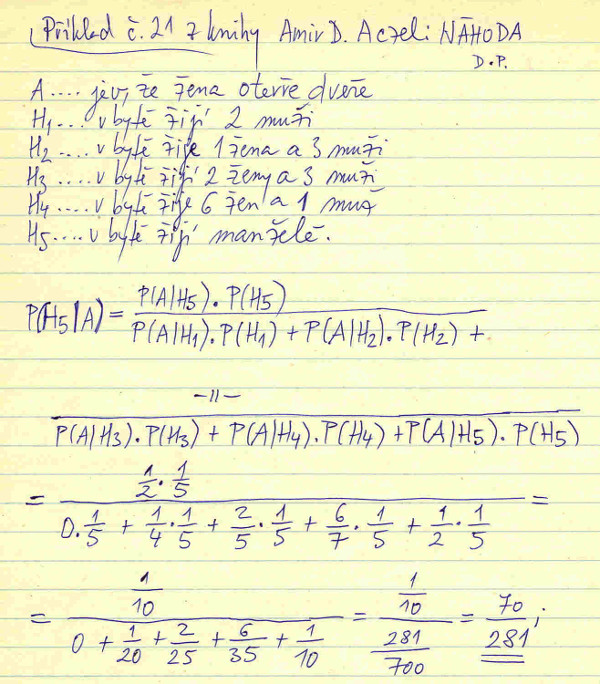 Příklad č. 21 z knihy Amir D. Aczel: NÁHODA
D.P.
A .... jev, že žena otevře dveře
H₁ ... v bytě žijí 2 muži
H₂ .... v bytě žije 1 žena a 3 muži
H₃ .... v bytě žijí 2 ženy a 3 muži
H₄ .... v bytě žije 6 žen a 1 muž
H₅ .... v bytě žijí manželé.
P(H₅|A) = P(A|H₅) . P(H₅)
P(A|H₁) . P(H₁) + P(A|H₂) . P(H₂) +
-11-
P(A|H₃) . P(H₃) + P(A|H₄) . P(H₄) + P(A|H₅) . P(H₅)
= 1/2 . 1/5
0 . 1/5 + 1/4 . 1/5 + 2/5 . 1/5 + 6/7 . 1/5 + 1/2 . 1/5 =
= 1/10
0 + 1/20 + 2/25 + 6/35 + 1/10 = 1/10 / 281/700 = 70/281 ;